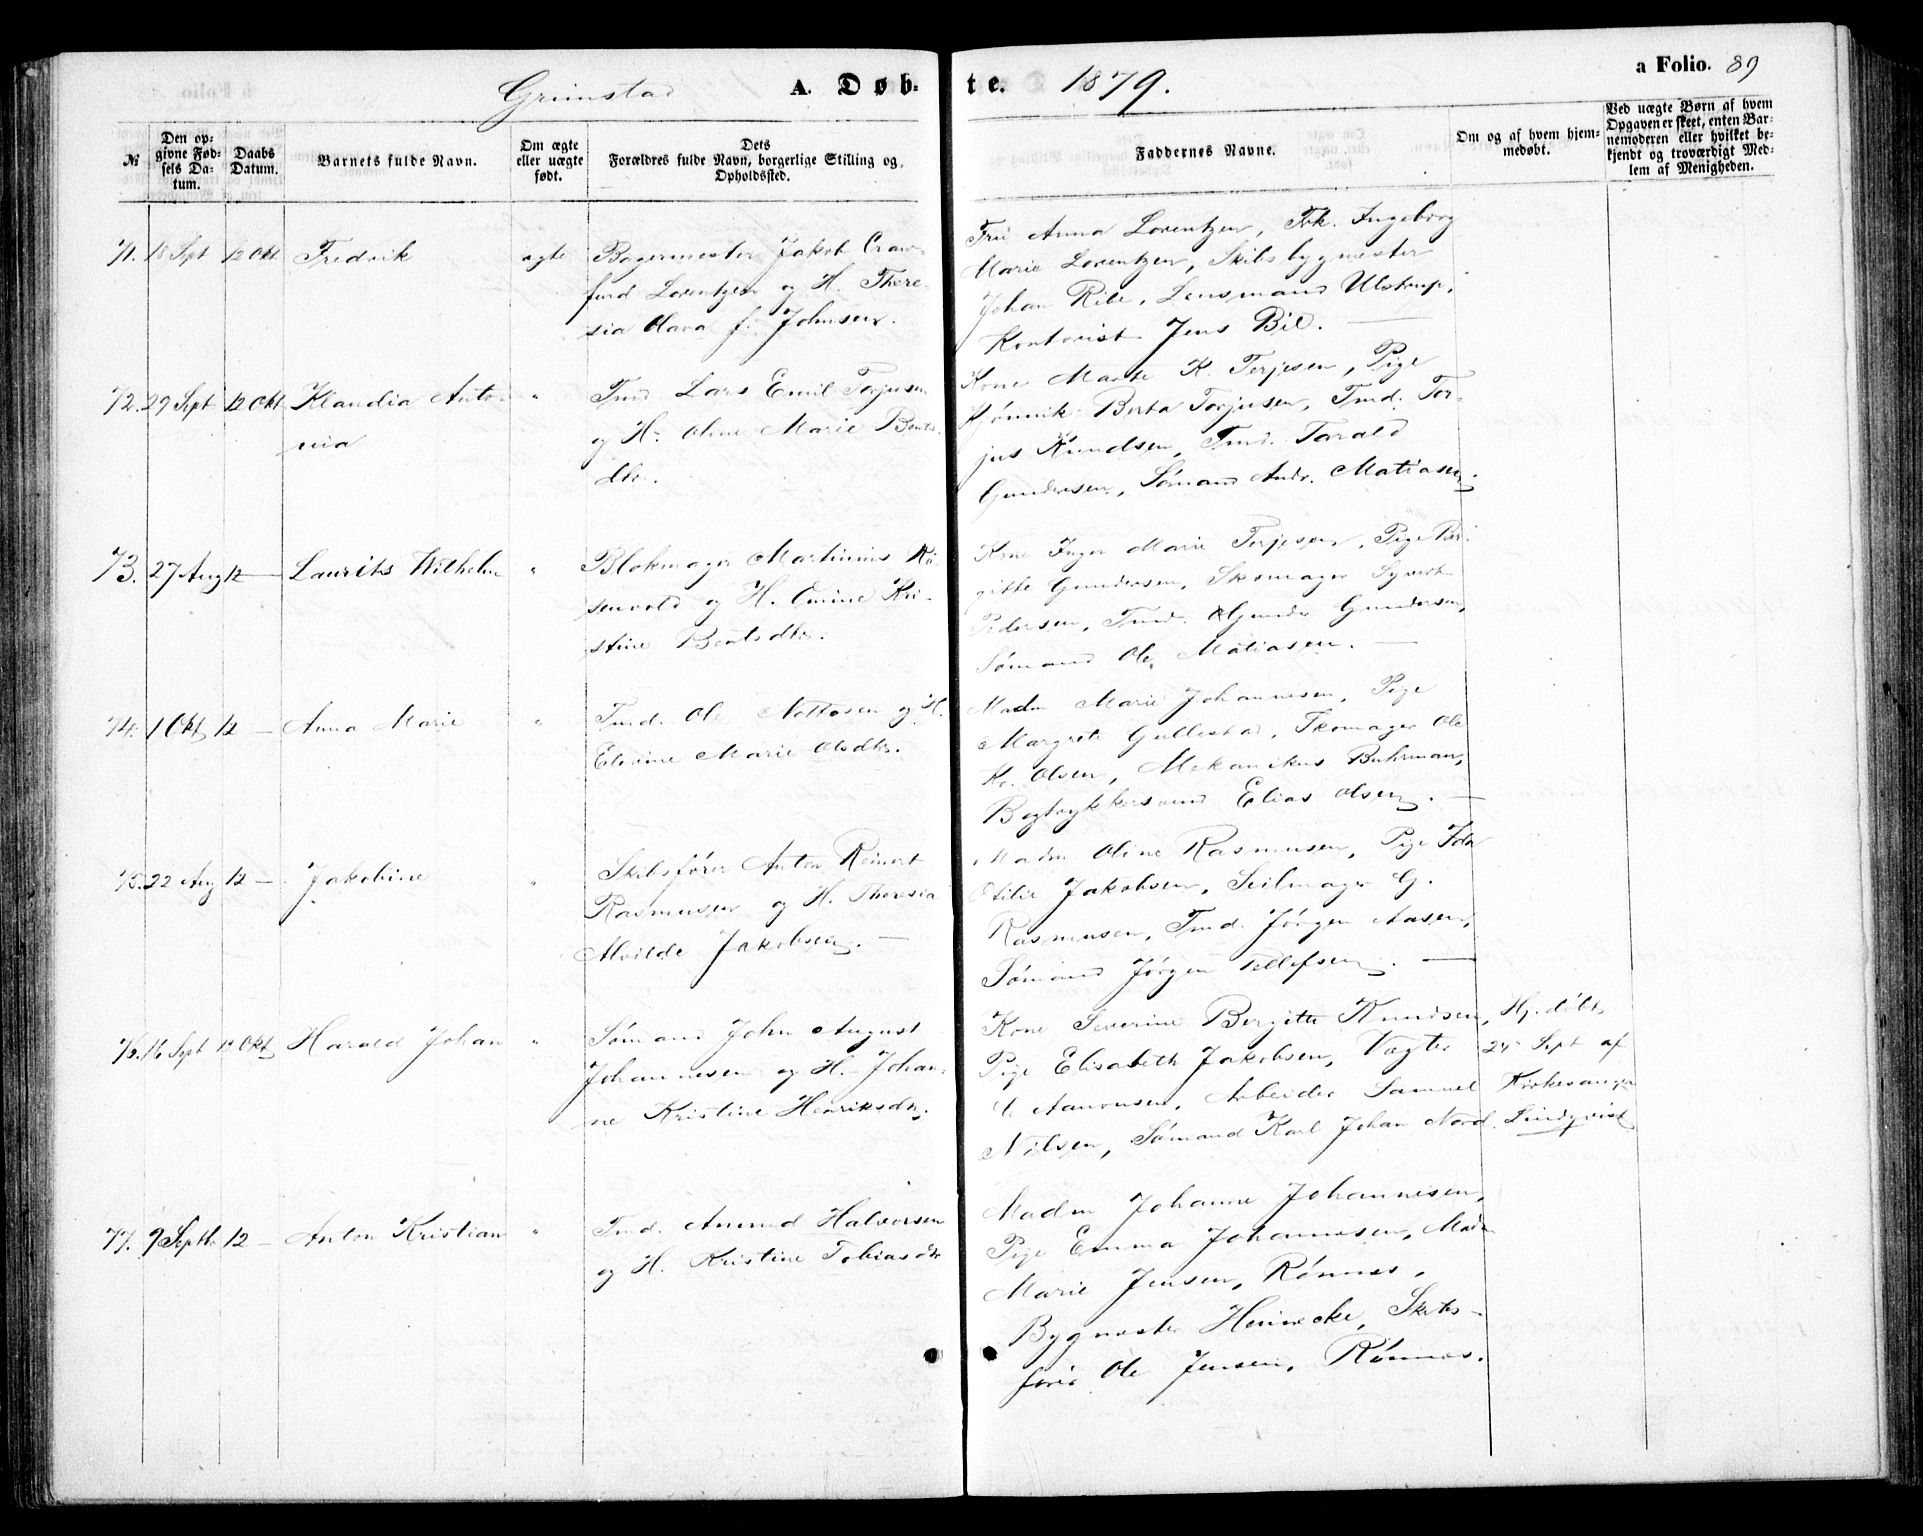 Grimstad A. Døb- te. 1879. a Folio. 89
№
Den op-
givne Fød-
sels Da-
tum.
Daabs
Datum.
Barnets fulde Navn.
Om ægte
eller uægte
født.
Dets
Forældres fulde Navn, borgerlige Stilling og,
Opholdssted.
Faddernes Navne.
Om og af hvem hjem-
medøbt.
Ved uægte Børn af hvem
Opgaven er skeet, enten Bar-
nemoderen eller hvilket be-
kjendt og troværdigt Med-
lem af Menigheden.
71. 18 Sept 12 Okt Fredrik ægte
Bagermester Jakob Craw-
furd Lorentzen og H. There-
sia Olava f. Johnsen.
Fru Anna Lorentzen, Frk. Ingeborg
Marie Lorentzen, Skibsbygmester
Johan Ribe, Lensmand Ulstrup,
Kontorist Jens Bie.
72. 29 Sept 12 Okt Klaudia Anto-
nia "
Tmd Lars Emil Torjusen
og H. Oline Marie Bents-
dtr.
Kone Marte K. Terjesen, Pige
Berta Torjusen, Tmd. Tor-
jus Knudsen, Tmd. Tarald
Gundersen, Sømand Andr. Matiasen.
73. 27 Aug 12 — Laurits Wilhelm "
Blokmager Martinius Ro-
senvold og H. Emine Kri-
stine Bentsdtr.
Kone Inger Marie Terjesen, Pige Bir-
gitte Gundersen, Skomager Syvert
Pedersen, Tmd. Gunder Gundersen,
Sømand Ole Matiasen. —
74. 1 Okt 12 — Anna Marie "
Tmd. Ole Nottosen og H.
Elevine Marie Olsdtr.
Madm Marie Johannesen, Pige
Margrete Gullestad, Skomager Ole
Kr. Olsen, Mekanikus Buhrman,
Bogtrykkersvend Elias Olsen. —
75. 22 Aug 12 — Jakobine "
Skibsfører Anton Reinert
Rasmussen og H. Theresia
Alvilde Jakobsen. —
Madm Oline Rasmusen, Pige Ida
Otilie Jakobsen, Seilmager G.
Rasmusen, Tmd. Jørgen Aasen,
Sømand Jørgen Tellefsen. —
76. 16 Sept 12 Okt Harald Johan "
Sømand John August
Johannesen og H. Johan-
ne Kristine Henriksdtr.
Kone Severine Bergitte Knudsen,
Pige Elisabeth Jakobsen, Vægter
Aanonsen, Arbeider Samuel
Nilsen, Sømand Karl Johan Nord.
Hj. døbt
24 Sept af
Kirkesanger
Lindqvist
77. 9 Septb. 12 — Anton Kristian "
Tmd. Anund Halvorsen
og H. Kristine Tobiasdtr
Madm Johanne Johannesen,
Pige Emma Johannesen, Madm
Marie Jensen, Rønnes,
Bygmester Heinecke, Skibs-
fører Ole Jensen, Rønnes.